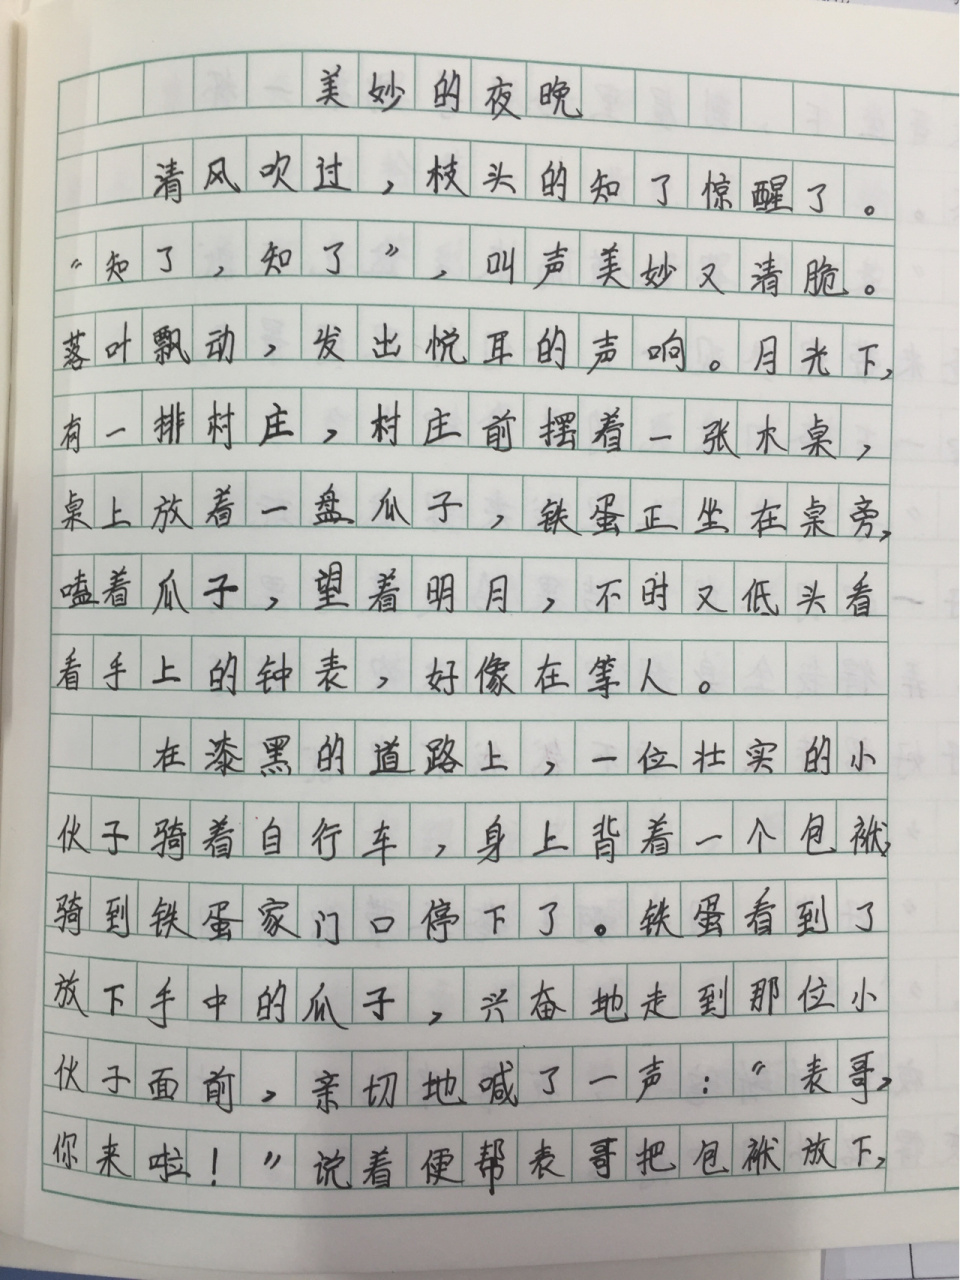 美妙的夜晚
清风吹过，枝头的知了惊醒了。
“知了，知了”，叫声美妙又清脆。
落叶飘动，发出悦耳的声响。月光下，
有一排村庄，村庄前摆着一张木桌，
桌上放着一盘瓜子，铁蛋正坐在桌旁，
嗑着瓜子，望着明月，不时又低头看
看手上的钟表，好像在等人。
在漆黑的道路上，一位壮实的小
伙子骑着自行车，身上背着一个包袱，
骑到铁蛋家门口停下了。铁蛋看到了
放下手中的瓜子，兴奋地走到那位小
伙子面前，亲切地喊了一声：“表哥，
你来啦！”说着便帮表哥把包袱放下，